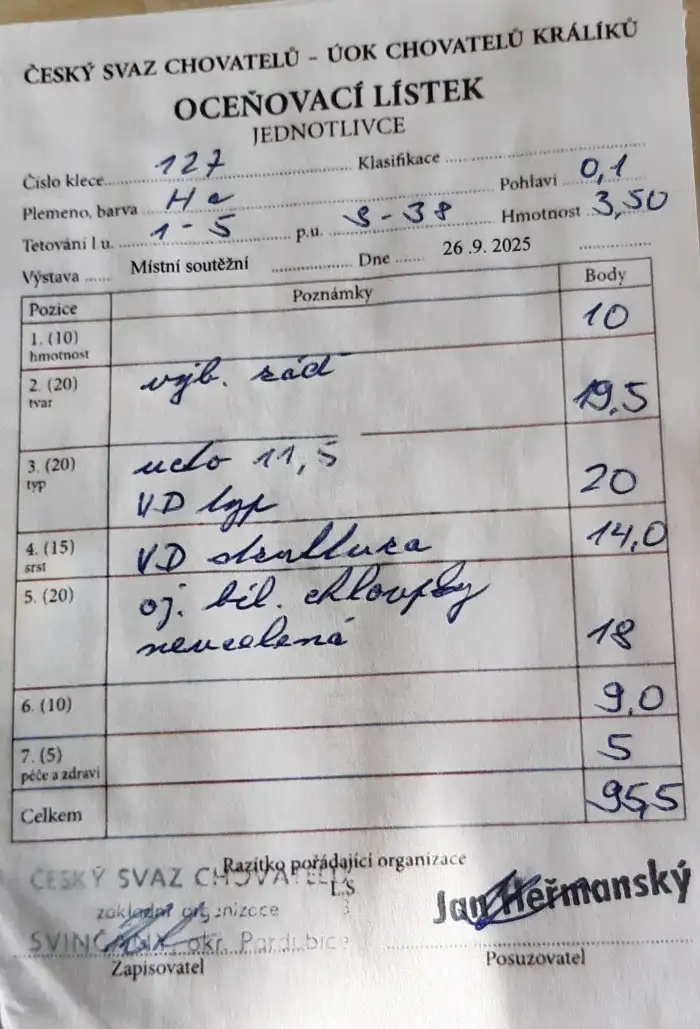 ČESKÝ SVAZ CHOVATELŮ – ÚOK CHOVATELŮ KRÁLÍKŮ
OCEŇOVACÍ LÍSTEK
JEDNOTLIVCE
Číslo klece 127 Klasifikace
Plemeno, barva He Pohlaví 0,1
Tetování l u. 1-5 p.u. 9-38 Hmotnost 3,50
Výstava Místní soutěžní Dne 26.9. 2025
Pozice Poznámky Body
1. (10) hmotnost 10
2. (20) tvar výb. zád 19,5
3. (20) typ ucho 11,5
VD typ 20
4. (15) srst VD struktura 14,0
5. (20) oj. bíl. chloupky
neucelená 18
6. (10) 9,0
7. (5) péče a zdraví 5
Celkem 95,5
Razítko pořádající organizace
L.S.
ČESKÝ SVAZ CHOVATELŮ
základní organizace
okr. Pardubice
Jan Heřmanský
Zapisovatel Posuzovatel